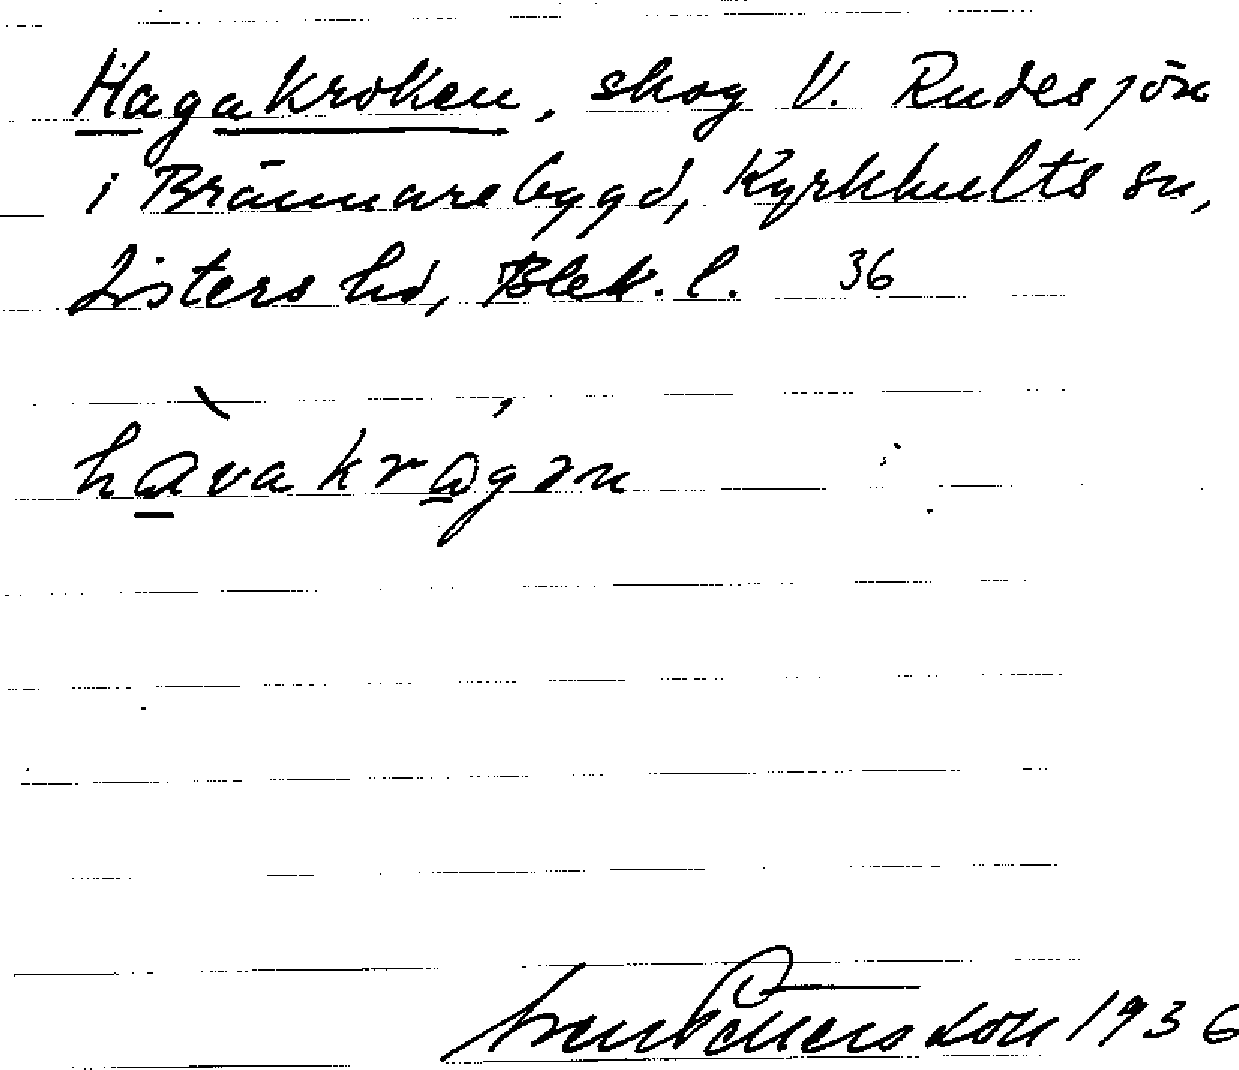 Hagakroken, skog V. Rudesjön
i Brännarebygd, Kyrkhults sn,
Listers hd, Blek. l. 36
hàvakrágən
Sven Pettersson 1936